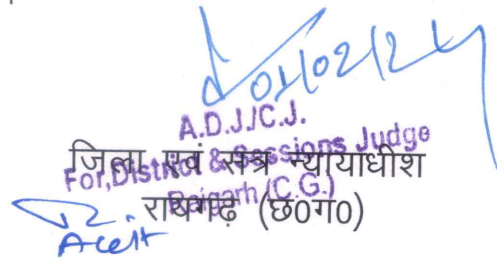 01/02/24
A.D.J./C.J.
For, District & Sessions Judge
Raigarh (C.G.)
जिला एवं सत्र न्यायाधीश
रायगढ़ (छ0ग0)